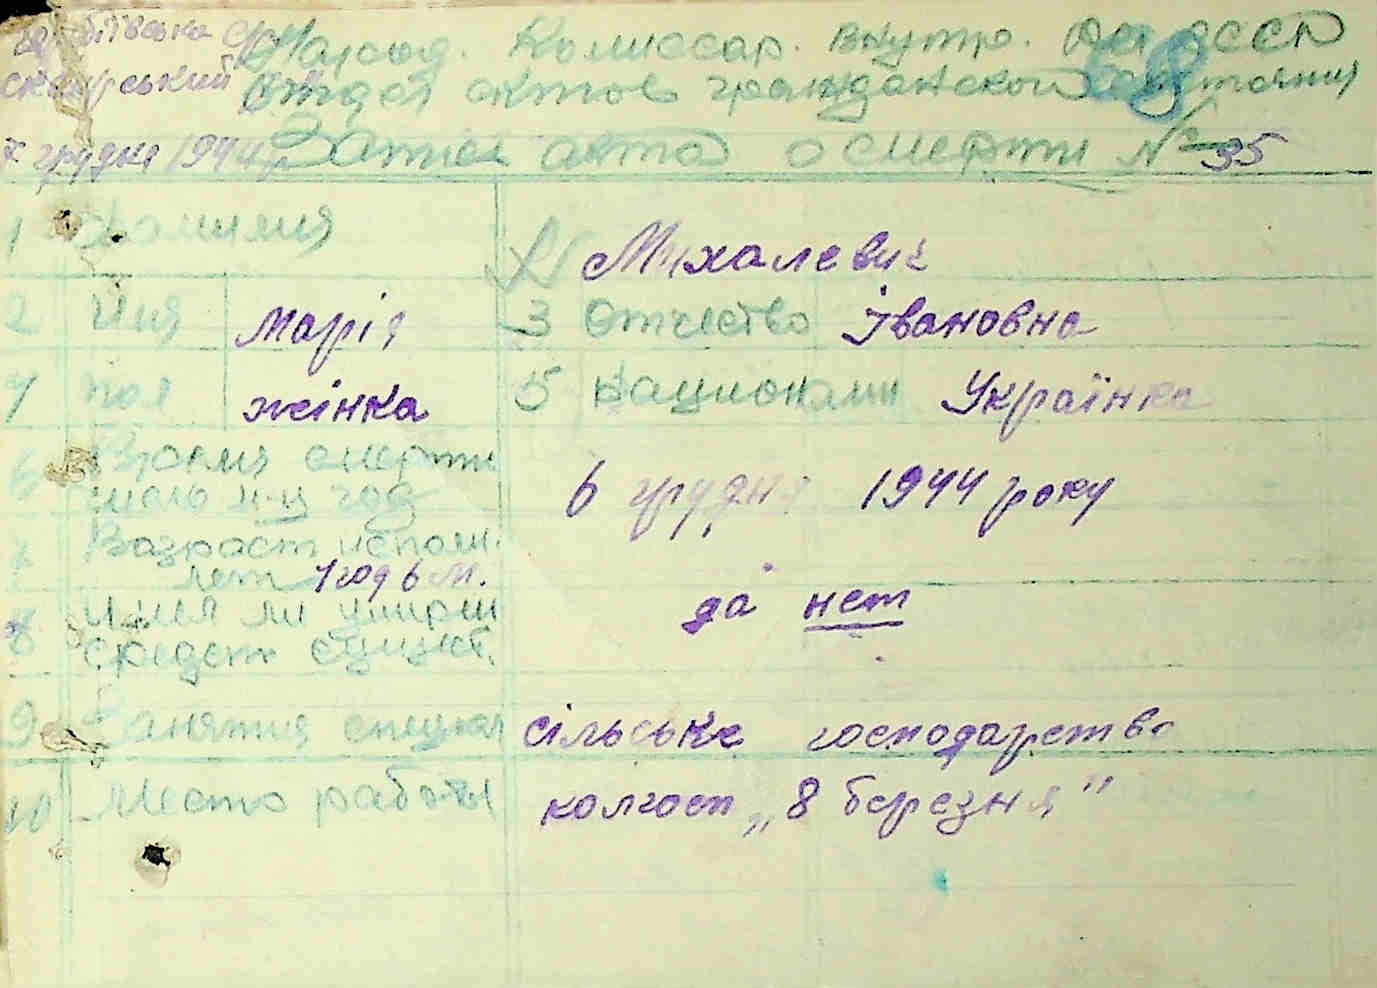 Народ. Комиссар. внутр. дел УССР 68
скавірський Отдел актов гражданской состояния
7 грудня 1944 р Запись акта о смерти № 35
1 Фамилия Михалевич
2 Имя Марія 3 Отчество Івановна
4 Пол жінка 5 Национали Українка
6 Время смерти
число м-ц год 6 грудня 1944 року
7 Возраст исполн.
лет 1 год 6 м.
8 Имел ли умерш да нет
средст
9 Занятия специал сільське господарство
10 Место работы колгосп „8 березня"